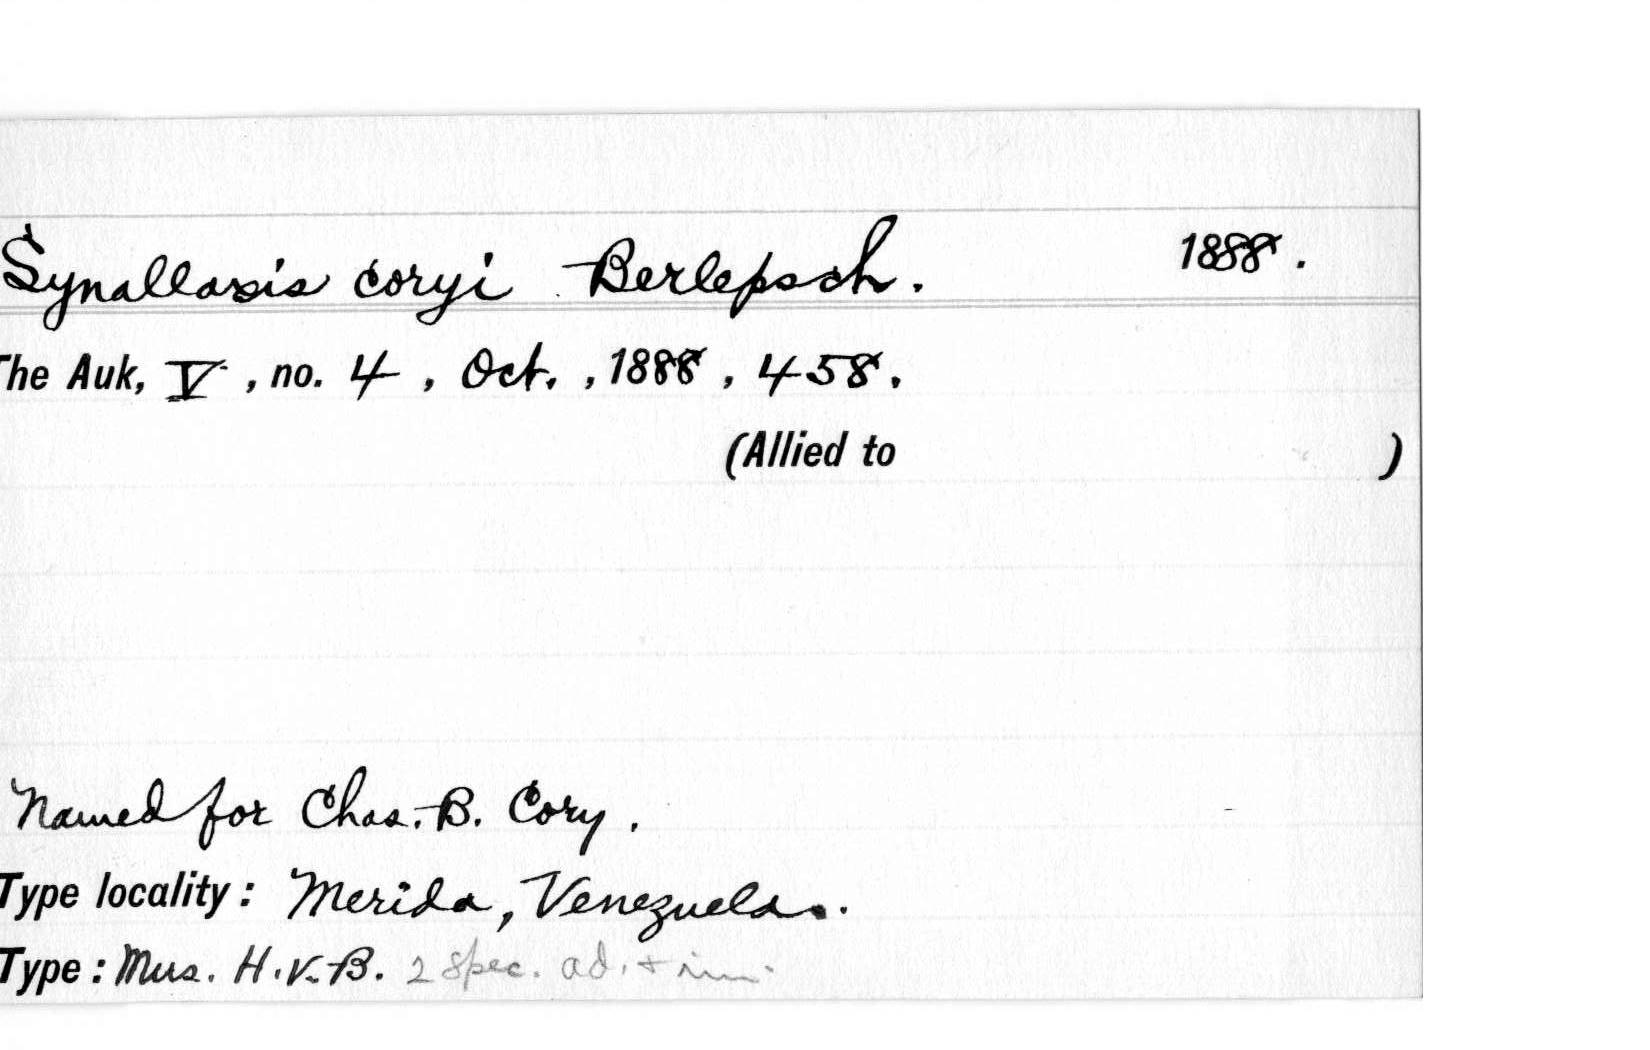 Synallaxis coryi Berlepsch. 1888.
The Auk, V, no. 4, Oct., 1888, 458.
(Allied to )
Named for Chas. B. Cory.
Type locality: Merida, Venezuela.
Type: Mus. H.v.B. 2 spec. ad. + im.